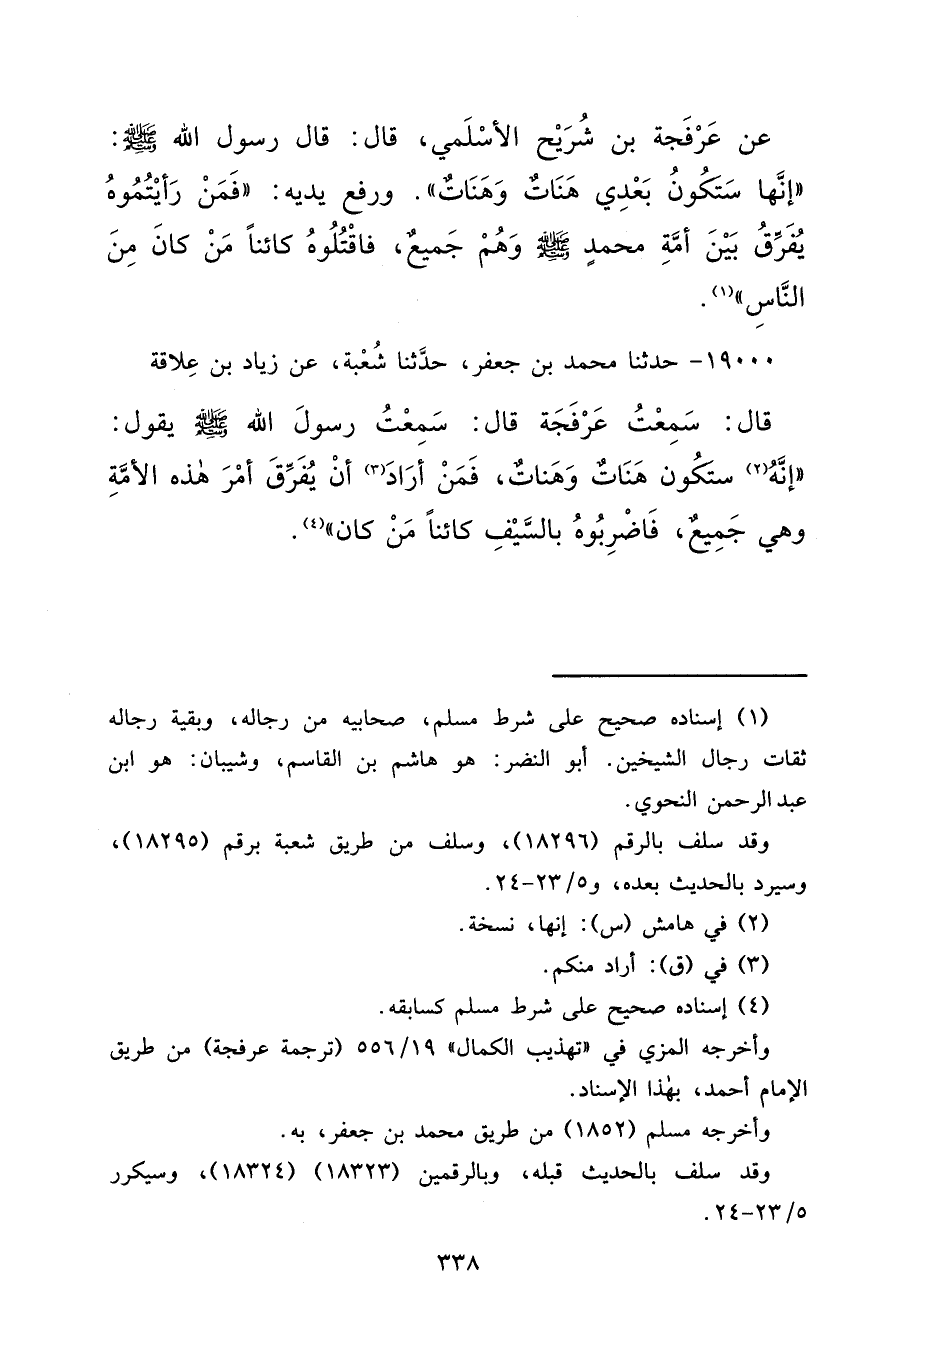 عن عَرْفَجة بن شُرَيْح الأسْلَمي، قال: قال رسول الله ﷺ:
«إنَّها سَتَكُونُ بَعْدِي هَنَاتٌ وَهَنَاتٌ». ورفع يديه: «فَمَنْ رَأيْتُمُوهُ
يُفَرِّقُ بَيْنَ أمَّةِ محمدٍ ﷺ وَهُمْ جَميعٌ، فاقْتُلُوهُ كائناً مَنْ كانَ مِنَ
النَّاسِ»(١).
١٩٠٠٠- حدثنا محمد بن جعفر، حدَّثنا شُعْبة، عن زياد بن عِلاقة
قال: سَمِعْتُ عَرْفَجَة قال: سَمِعْتُ رسولَ الله ﷺ يقول:
«إنَّهُ(٢) ستكُون هَنَاتٌ وَهَناتٌ، فَمَنْ أرَادَ(٣) أنْ يُفَرِّقَ أمْرَ هٰذه الأمَّةِ
وهي جَمِيعٌ، فَاضْرِبُوهُ بالسَّيْفِ كائناً مَنْ كان»(٤).
(١) إسناده صحيح على شرط مسلم، صحابيه من رجاله، وبقية رجاله
ثقات رجال الشيخين. أبو النضر: هو هاشم بن القاسم، وشيبان: هو ابن
عبد الرحمن النحوي.
وقد سلف بالرقم (١٨٢٩٦)، وسلف من طريق شعبة برقم (١٨٢٩٥)،
وسيرد بالحديث بعده، و٢٣/٥-٢٤.
(٢) في هامش (س): إنها، نسخة.
(٣) في (ق): أراد منكم.
(٤) إسناده صحيح على شرط مسلم كسابقه.
وأخرجه المزي في «تهذيب الكمال» ٥٥٦/١٩ (ترجمة عرفجة) من طريق
الإمام أحمد، بهٰذا الإسناد.
وأخرجه مسلم (١٨٥٢) من طريق محمد بن جعفر، به.
وقد سلف بالحديث قبله، وبالرقمين (١٨٣٢٣) (١٨٣٢٤)، وسيكرر
٢٣/٥-٢٤.
٣٣٨